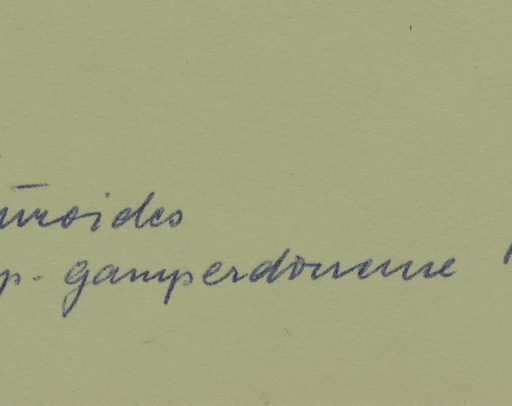 uroides
p. gamperdonense